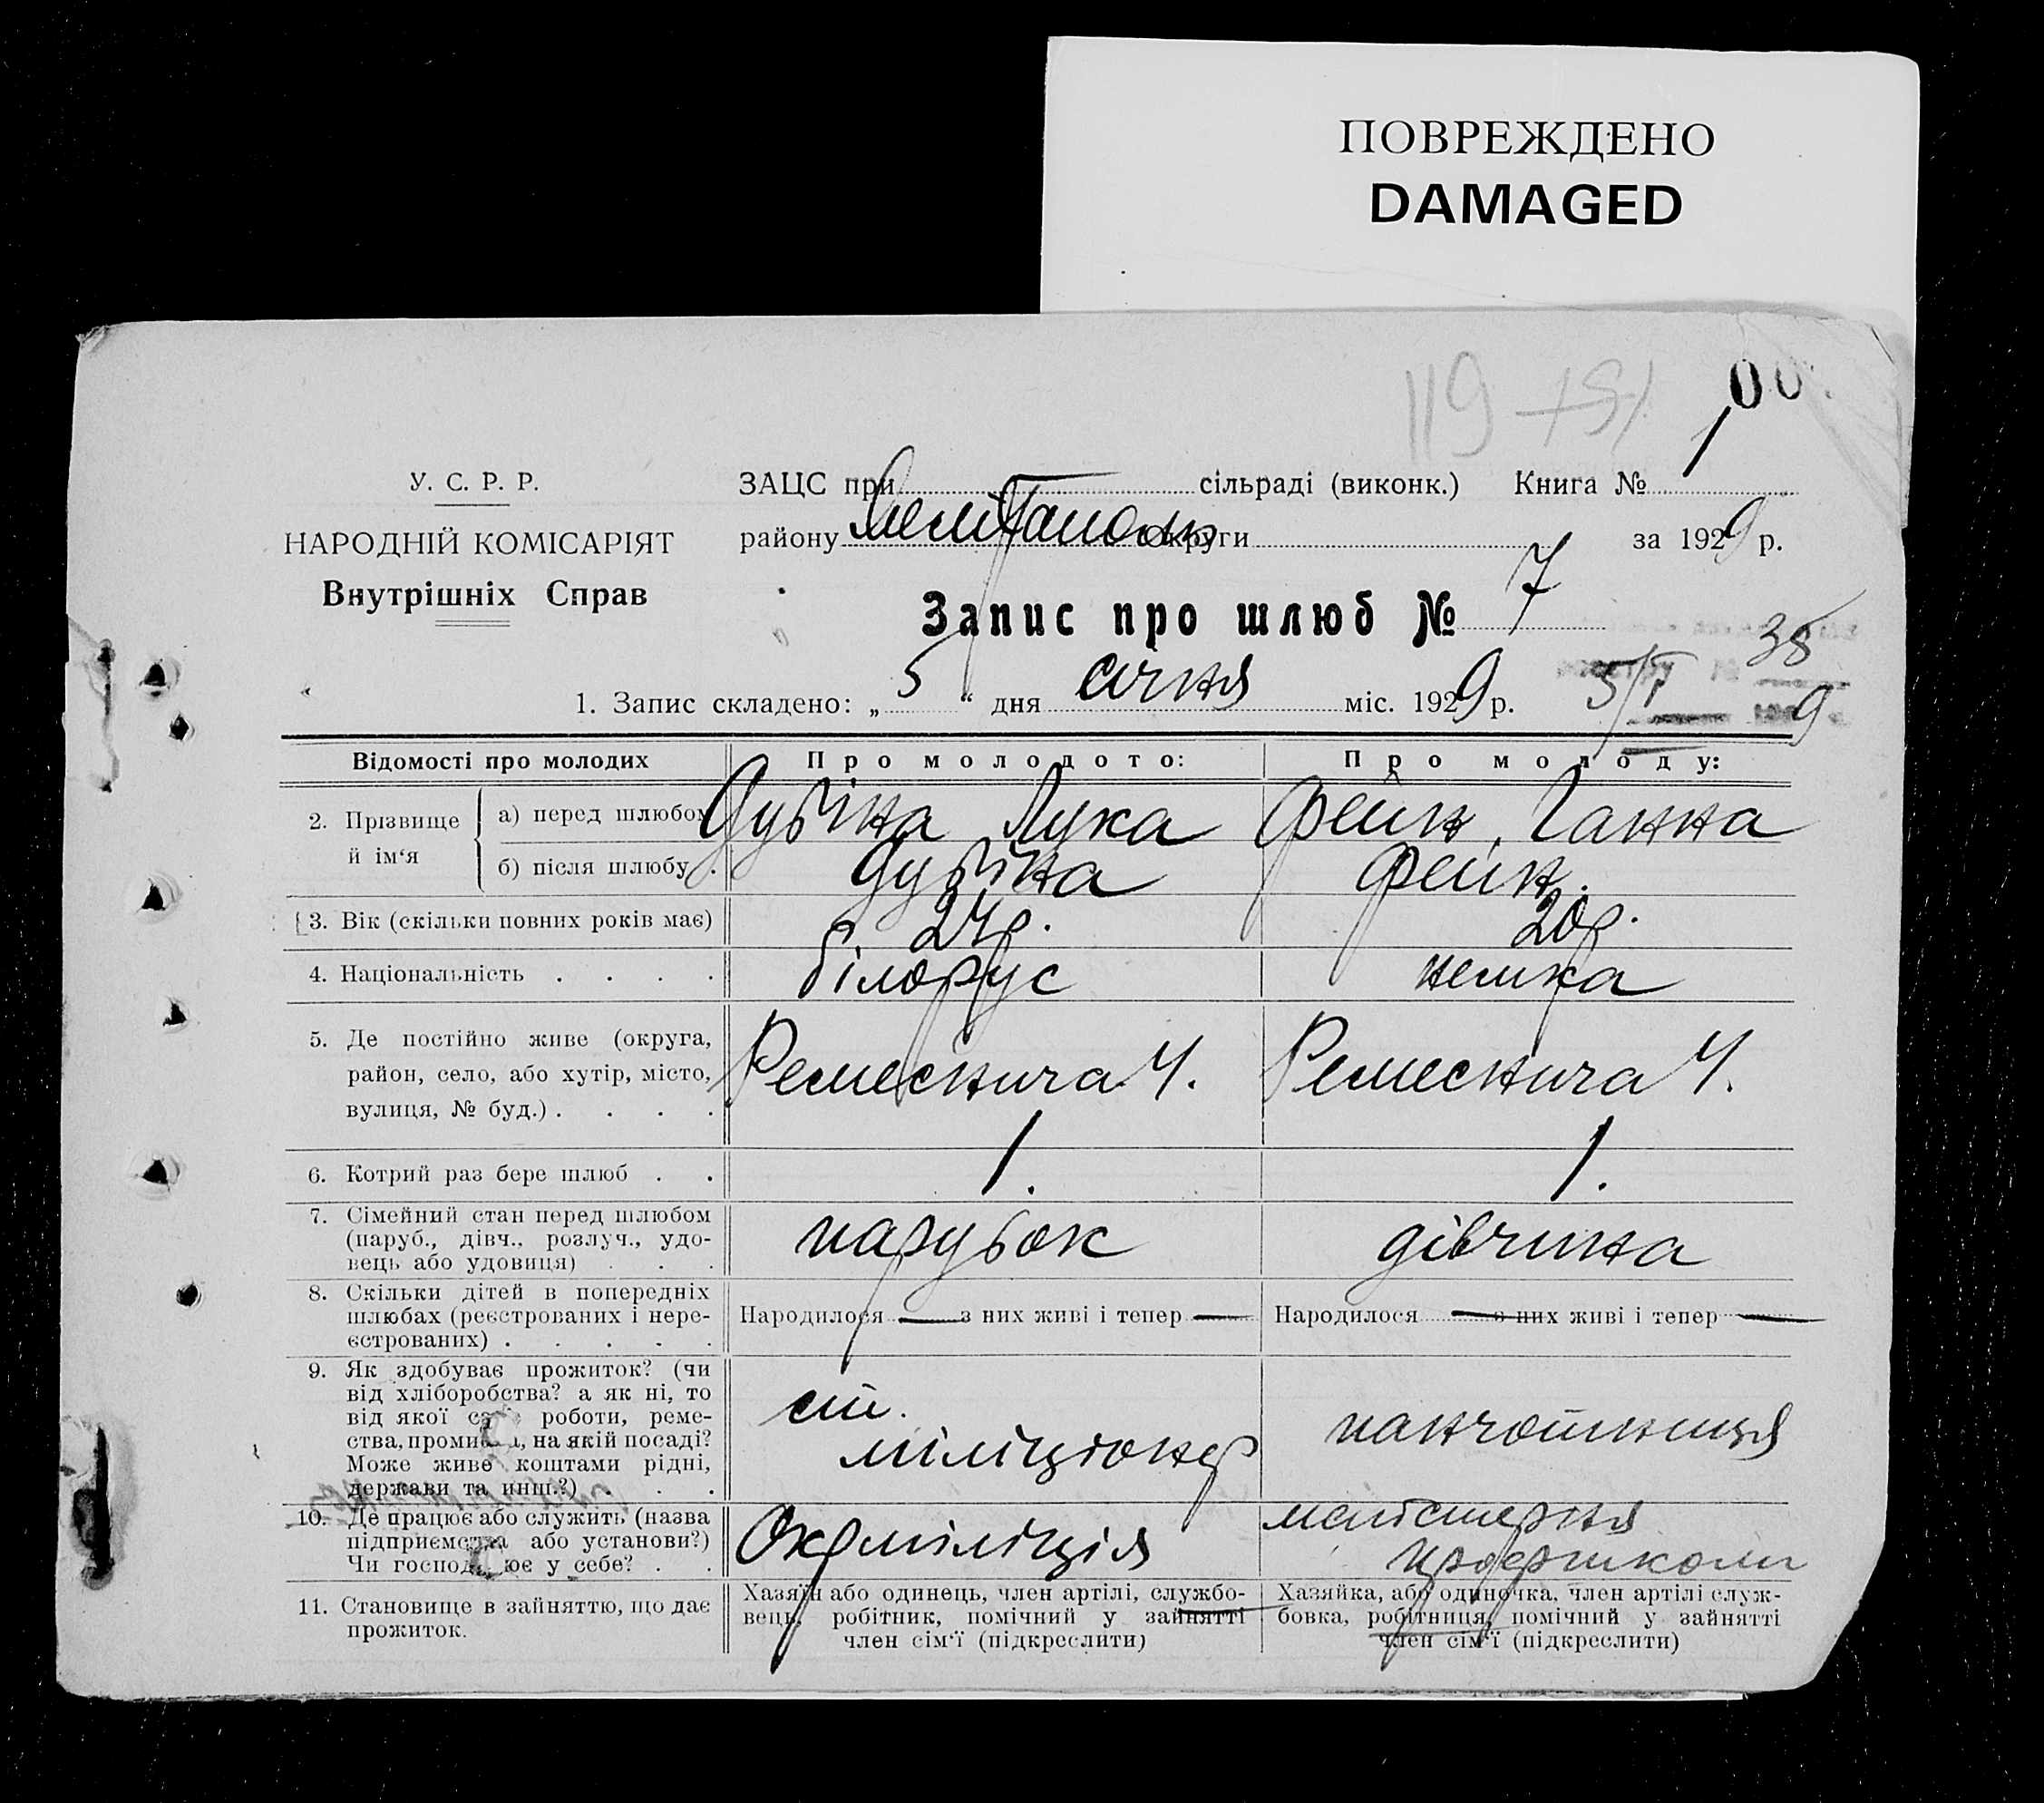 ПОВРЕЖДЕНО
DAMAGED
119
1
У. С. Р. Р.
НАРОДНІЙ КОМІСАРІЯТ
Внутрішніх Справ
ЗАЦС при сільраді (виконк.) Книга №
району Мелітополь округи за 1929 р.
Запис про шлюб № 7
38
1. Запис складено: „ 5 “ дня січня міс. 1929 р. 5/I 9
Відомості про молодих
Про молодого:
Про молоду:
2. Прізвище й ім‘я
а) перед шлюбом
Дубіна Лука
Фейн, Ганна
б) після шлюбу .
Дубіна
Фейн.
3. Вік (скільки повних років має)
24р.
20р.
4. Національність . . . .
білорус
немка
5. Де постійно живе (округа,
район, село, або хутір, місто,
вулиця, № буд.) . . . .
Ремеснича 4.
Ремеснича 4.
6. Котрий раз бере шлюб . .
1.
1.
7. Сімейний стан перед шлюбом
(паруб., дівч., розлуч., удо-
вець або удовиця) . . .
парубок
дівчина
8. Скільки дітей в попередніх
шлюбах (реєстрованих і нере-
єстрованих) . . . . .
Народилося — з них живі і тепер —
Народилося — з них живі і тепер —
9. Як здобуває прожиток? (чи
від хліборобства? а як ні, то
від якої роботи, реме-
ства, промисла, на якій посаді?
Може живе коштами рідні,
держави та инш.?) . . .
ст.
міліціонер
панчошниця
10. Де працює або служить (назва
підприємства або установи?)
Чи господарює у себе? . .
Окрміліція
майстерня
профшколи
11. Становище в зайняттю, що дає
прожиток.
Хазяїн або одинець, член артілі, службо-
вець, робітник, помічний у зайнятті
член сім‘ї (підкреслити)
Хазяйка, або одиночка, член артілі служ-
бовка, робітниця, помічний у зайнятті
член сім‘ї (підкреслити)